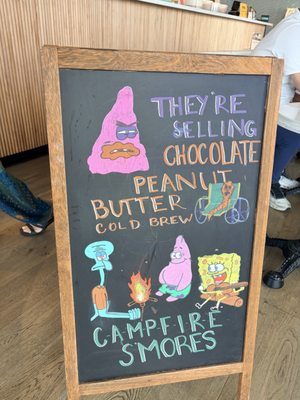 THEY'RE
SELLING
CHOCOLATE
PEANUT
BUTTER
COLD BREW
CAMPFIRE
S'MORES